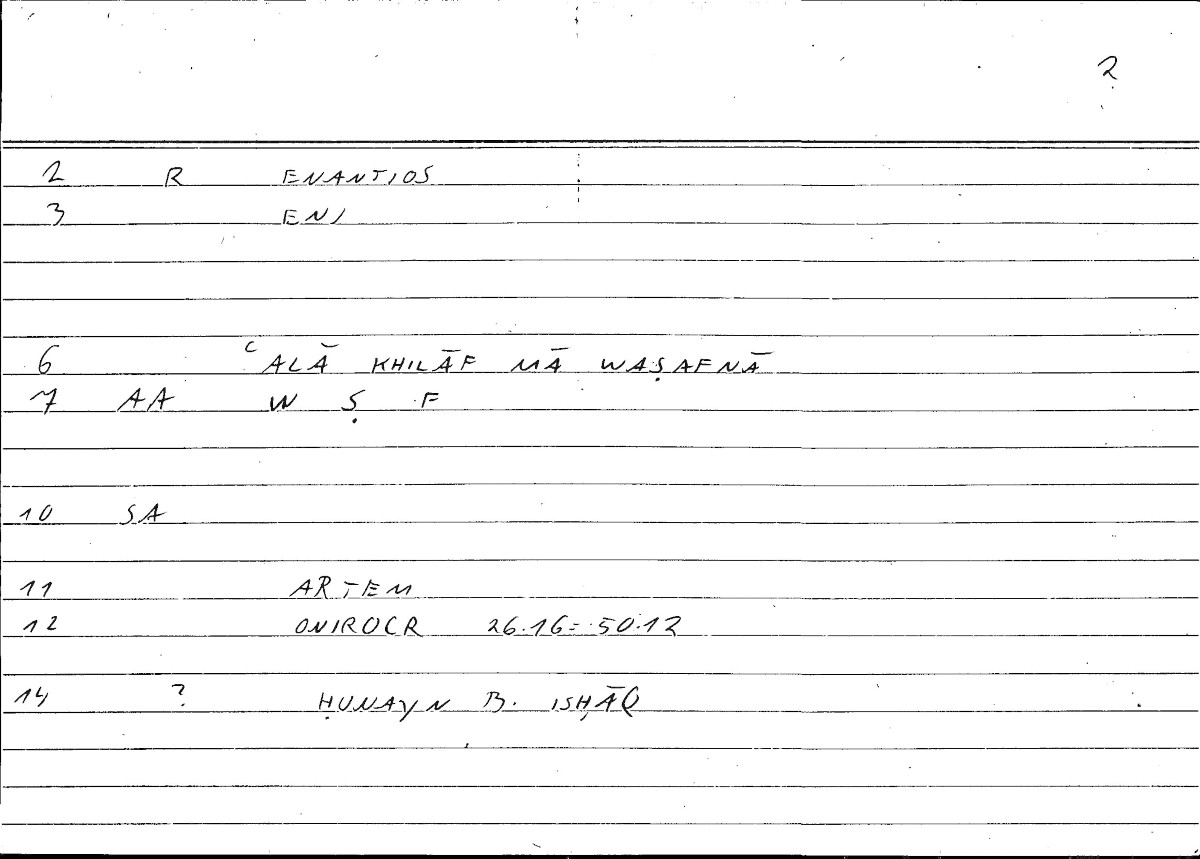 2
2 R ENANTIOS
3 ENI
6 ʿALĀ KHILĀF MĀ WAṢAFNĀ
7 AA W Ṣ F
10 SA
11 ARTEM
12 ONIROCR 26.16=50.12
14 ? ḤUNAYN B. ISḤĀQ